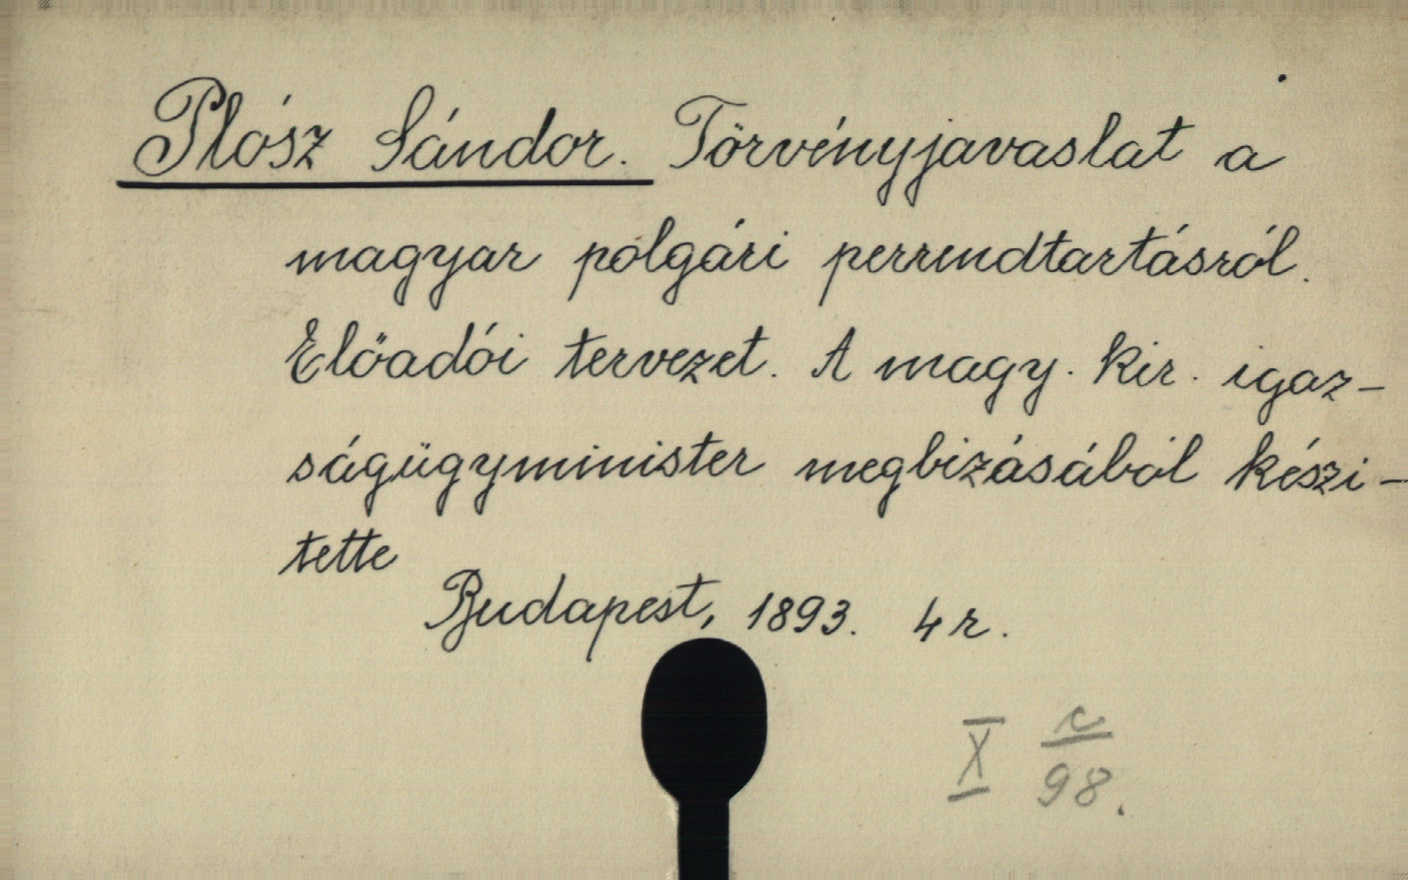 Plósz Sándor. Törvényjavaslat a
magyar polgári perrendtartásról.
Előadói tervezet. A magy. kir. igaz-
ságügyminister megbizásából készi-
tette
Budapest, 1893. 4r.
X c
98.